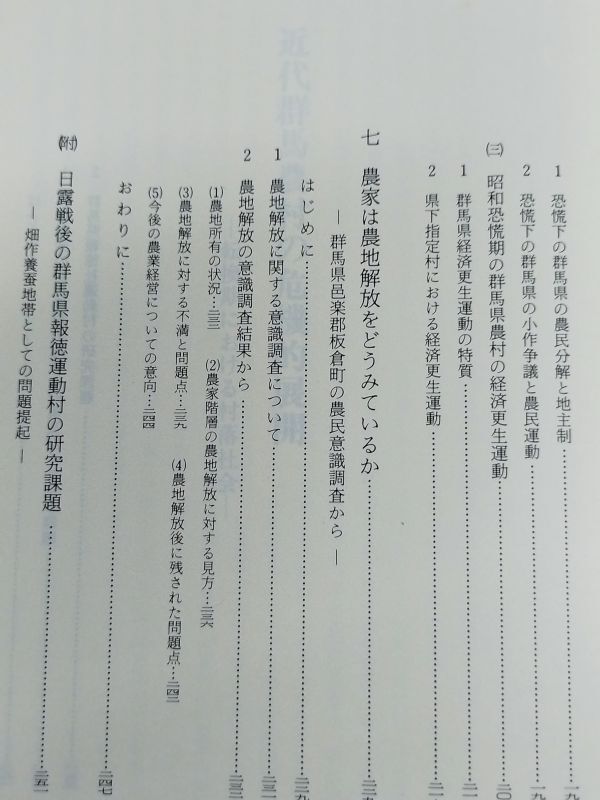 1 恐慌下の群馬県の農民分解と地主制
2 恐慌下の群馬県の小作争議と農民運動
㈢ 昭和恐慌期の群馬県農村の経済更生運動
1 群馬県経済更生運動の特質
2 県下指定村における経済更生運動
七 農家は農地解放をどうみているか
― 群馬県邑楽郡板倉町の農民意識調査から ―
はじめに
1 農地解放に関する意識調査について
2 農地解放の意識調査結果から
⑴農地所有の状況…二三三 ⑵農家階層の農地解放に対する見方…二三六
⑶農地解放に対する不満と問題点…二三九 ⑷農地解放後に残された問題点…二四二
⑸今後の農業経営についての意向…二四四
おわりに……二四七
㈵ 日露戦後の群馬県報徳運動村の研究課題……二五一
― 畑作養蚕地帯としての問題提起 ―